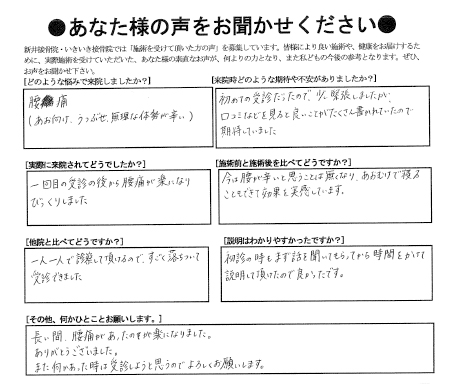 ●あなた様の声をお聞かせください●
新井接骨院・いきいき接骨院では「施術を受けて頂いた方の声」を募集しています。皆様により良い施術や、健康をお届けするた
めに、実際施術を受けていただいた、あなた様の素直なお声が、何よりの力となり、また私どもの今後の参考となります。ぜひ、
お声をお聞かせ下さい。
[どのような悩みで来院しましたか?]
腰痛
(あお向け、うつぶせ、無理な体勢が辛い)
[来院時どのような期待や不安がありましたか?]
初めての受診だったので少し緊張しましたが、
口コミなどを見ると良いことがたくさん書かれていたので
期待していました
[実際に来院されてどうでしたか?]
一回目の受診の後から腰痛が楽になり
びっくりしました
[施術前と施術後を比べてどうですか?]
今は腰が辛いと思うことは無くなり、あおむけで寝る
こともできて効果を実感しています。
[他院と比べてどうですか?]
一人一人で診察して頂けるので、すごく落ちついて
受診できました
[説明はわかりやすかったですか?]
初診の時もまず話を聞いてもらってから時間をかけて
説明して頂けたので良かったです。
[その他、何かひとことお願いします。]
長い間、腰痛があったのが楽になりました。
ありがとうございました。
また何かあった時は受診しようと思うのでよろしくお願いします。